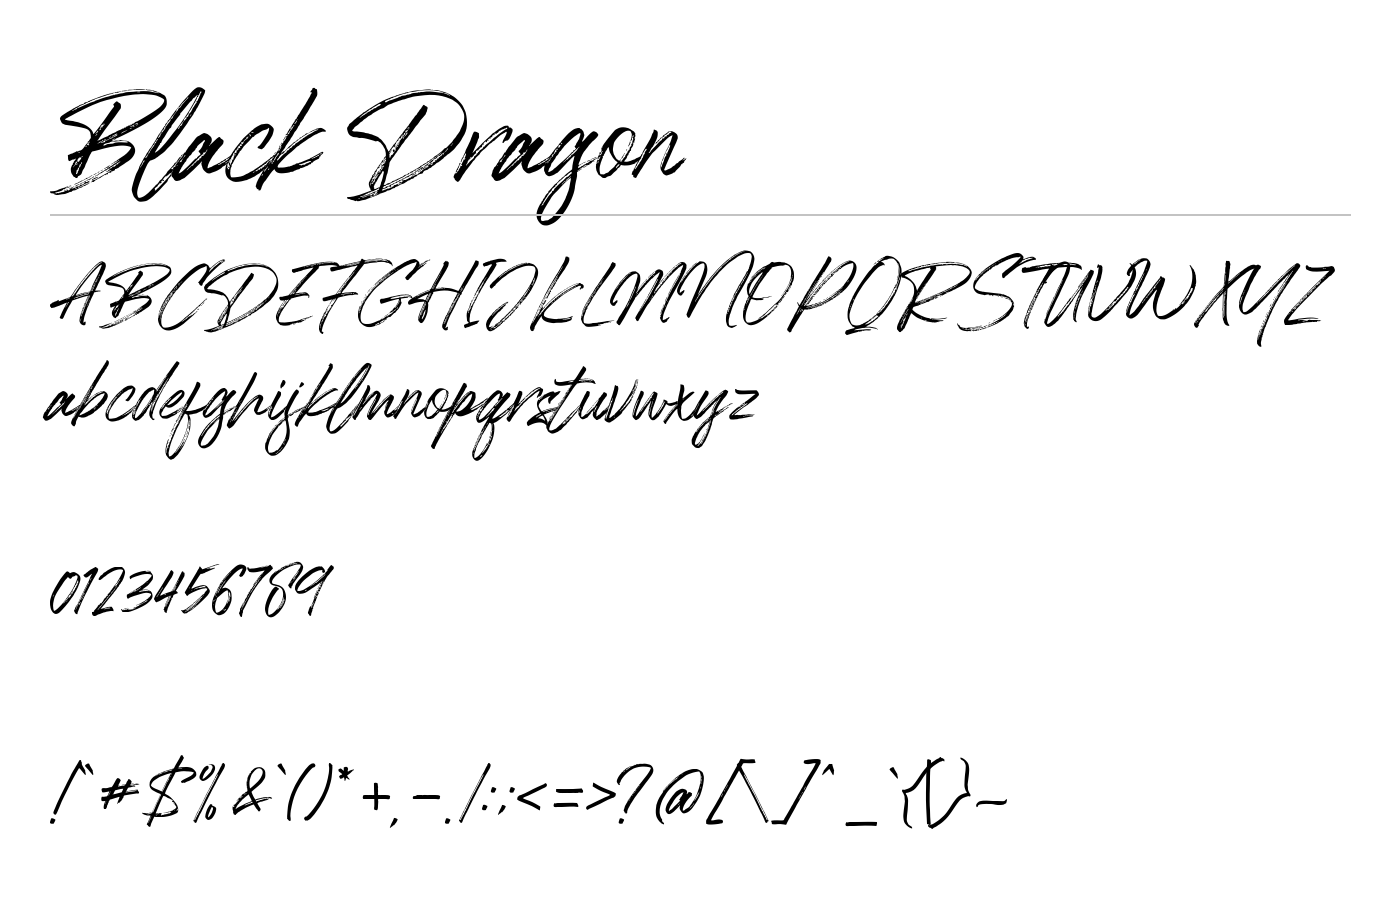 Black Dragon
ABCDEFGHIJKLMNOPQRSTUVWXYZ
abcdefghijklmnopqrstuvwxyz
0123456789
!"#$%&'()*+,-./:;<=>?@[\]^_`{|}~